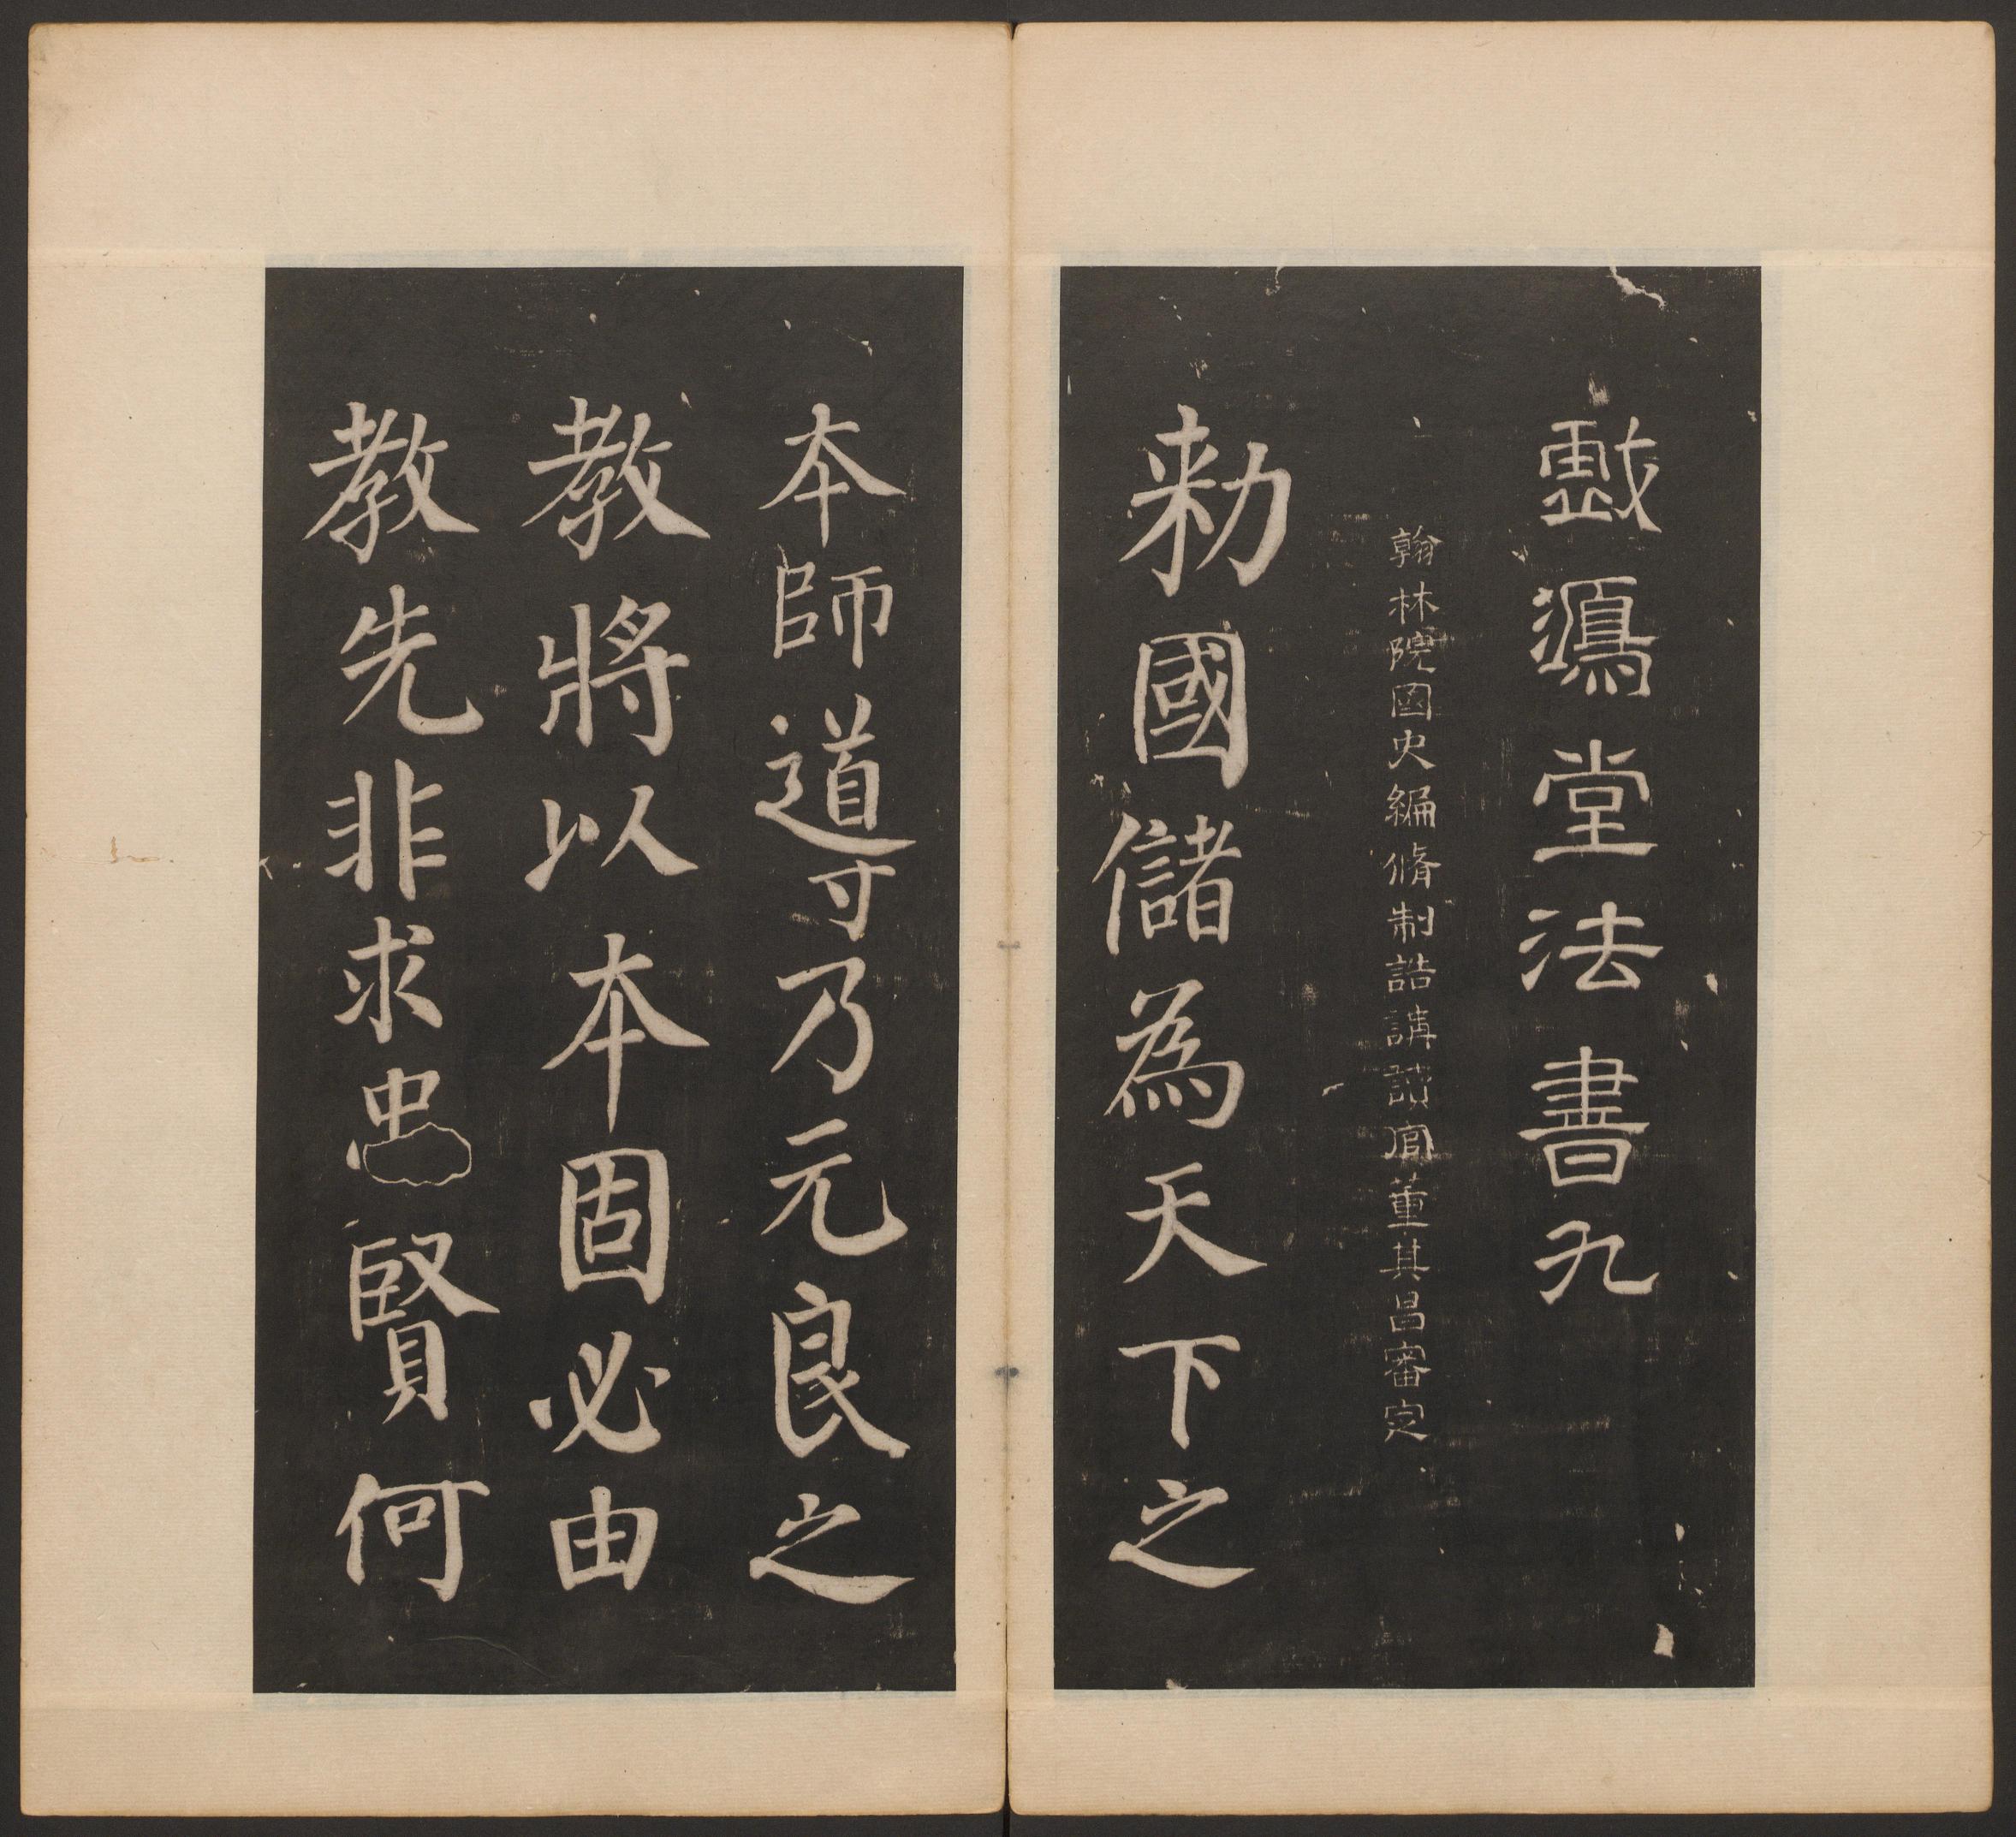 戲鴻堂法書九
翰林院國史編脩制誥講讀官董其昌審定
勑國儲為天下之
本師導乃元良之
教將以本固必由
教先非求忠賢何